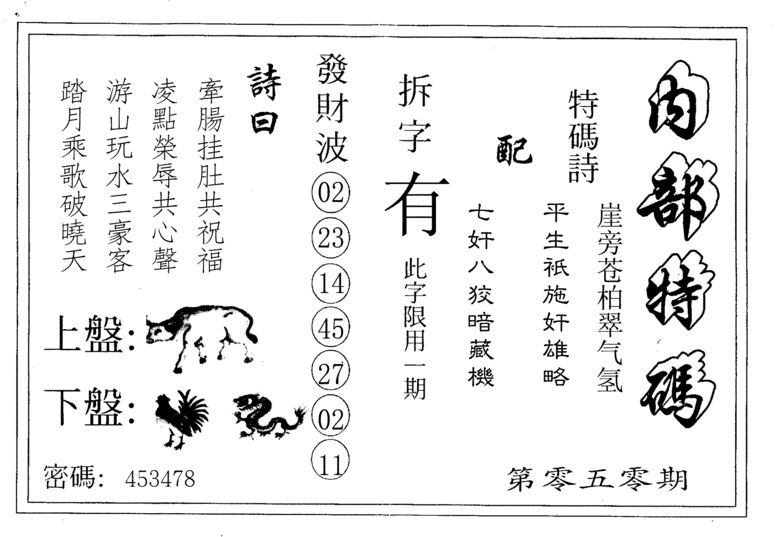 內部特碼
特碼詩
崖旁苍柏翠气氢
平生衹施奸雄略
配
七奸八狡暗藏機
第零五零期
拆字
有
此字限用一期
發財波
02
23
14
45
27
02
11
詩曰
牽腸挂肚共祝福
凌點榮辱共心聲
游山玩水三豪客
踏月乘歌破曉天
上盤:
下盤:
密碼: 453478